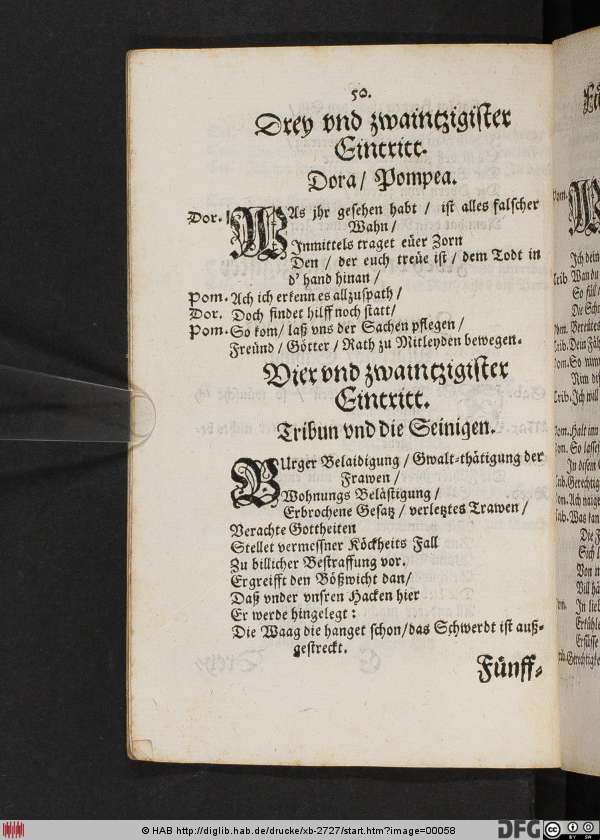 50.
Drey vnd zwaintzigister
Eintritt.
Dora / Pompea.
Dor. WAs jhr gesehen habt / ist alles falscher
Wahn /
Inmittels traget eüer Zorn
Den / der euch treüe ist / dem Todt in
d' hand hinan /
Pom. Ach ich erkenn es allzuspath /
Dor. Doch findet hilff noch statt /
Pom. So kom / laß vns der Sachen pflegen /
Freünd / Götter / Rath zu Mitleyden bewegen.
Vier vnd zwaintzigister
Eintritt.
Tribun vnd die Seinigen.
BUrger Belaidigung / Gwalt-thätigung der
Frawen /
Wohnungs Belästigung /
Erbrochene Gesatz / verletztes Trawen /
Verachte Gottheiten
Stellet vermessner Köckheits Fall
Zu billicher Bestraffung vor.
Ergreifft den Bößwicht dan /
Daß vnder vnsren Hacken hier
Er werde hingelegt:
Die Waag die hanget schon / das Schwerdt ist auß-
gestreckt.
Fünff-
© HAB http://diglib.hab.de/drucke/xb-2727/start.htm?image=00058
DFG
CC BY SA